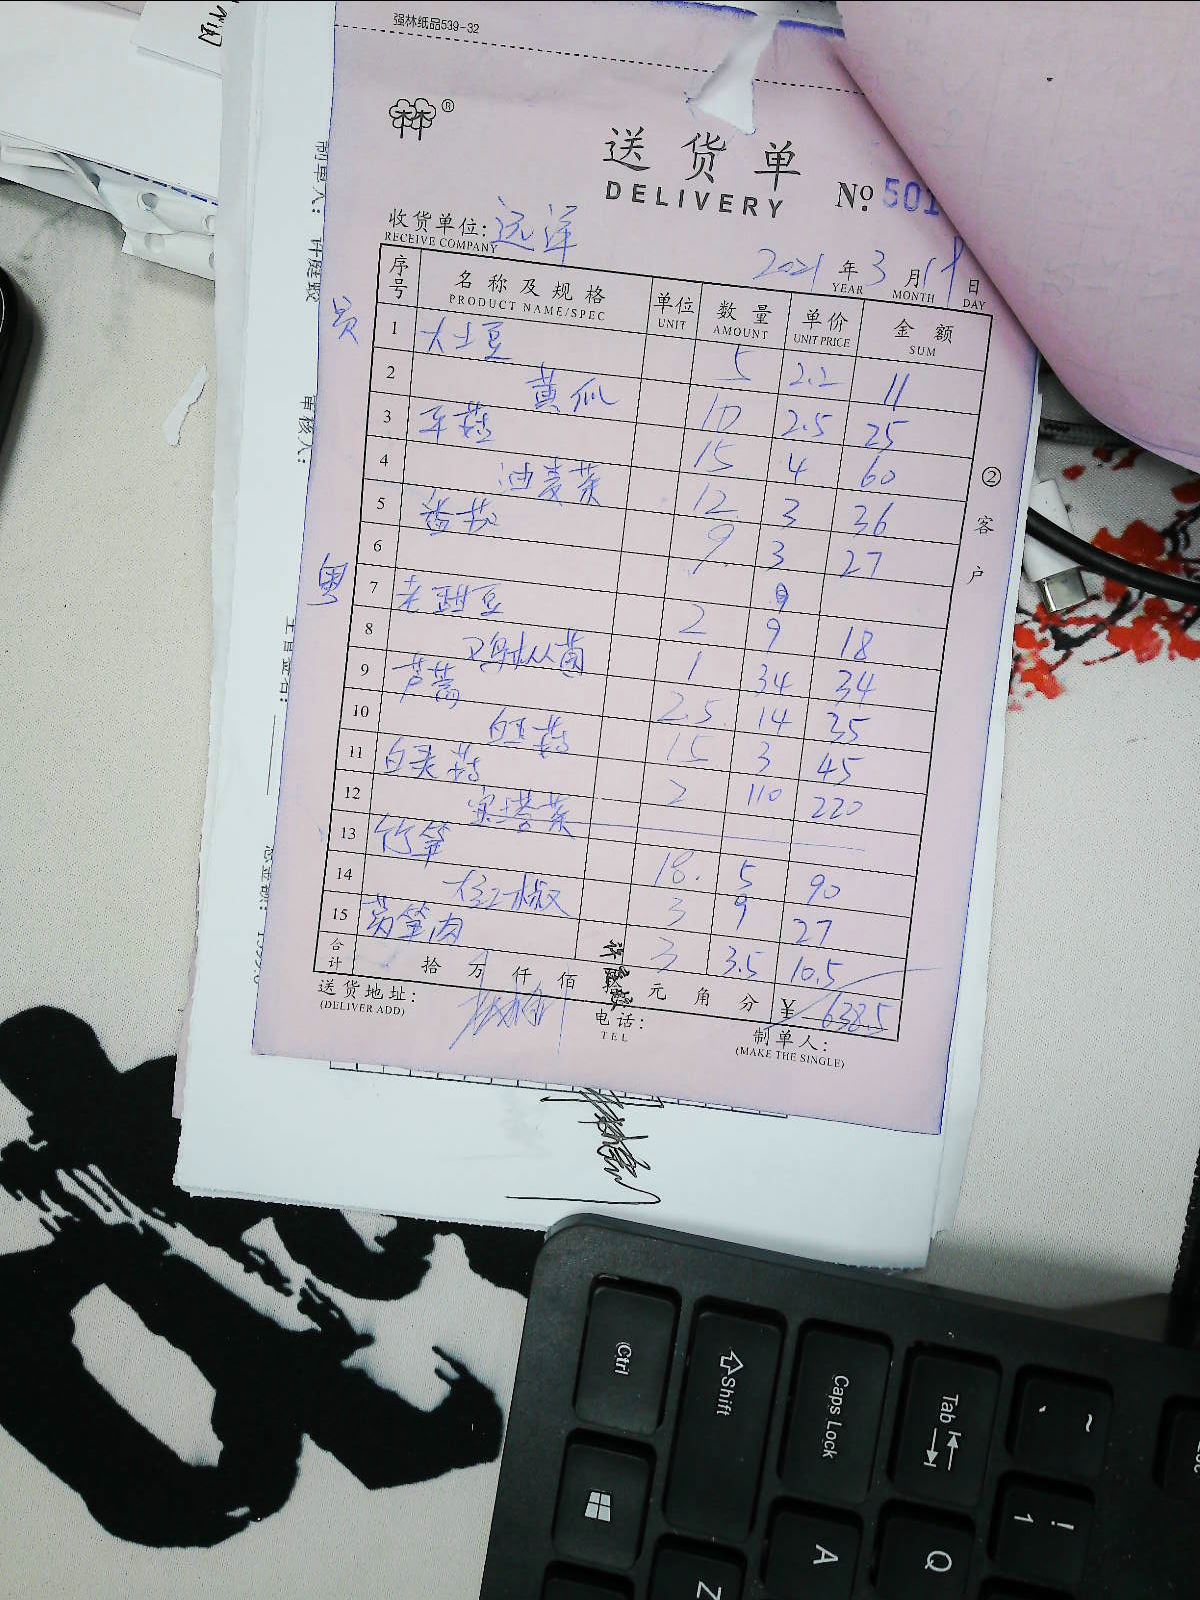 强林纸品539-32
®
送货单
DELIVERY
No. 501
收货单位: 远洋
RECEIVE COMPANY
2021 年 3 月 19 日
YEAR MONTH DAY
序号 名称及规格 单位 数量 单价 金额
PRODUCT NAME/SPEC UNIT AMOUNT UNIT PRICE SUM
1 大土豆 5 2.2 11
2 黄瓜 10 2.5 25
3 平菇 15 4 60
4 油麦菜 12 3 36
5 番茄 9 3 27
6
7 老甜豆 2 9 18
8 鸡枞菌 1 34 34
9 芦蒿 2.5 14 35
10 白玉菇 15 3 45
11 2 110 220
12 宝塔菜
13 竹笋 18. 5 90
14 大红椒 3 9 27
15 莴笋肉 3 3.5 10.5
合计 拾 万 仟 佰 拾 元 角 分 ¥ 638.5
送货地址:
(DELIVER ADD)
电话:
TEL
制单人:
(MAKE THE SINGLE)
② 客户
员
粤
制单人: 许庭毅
审核人:
主管签名:
总金额:
Ctrl
Shift
Caps Lock
Tab
~
!
1
Q
A
Z